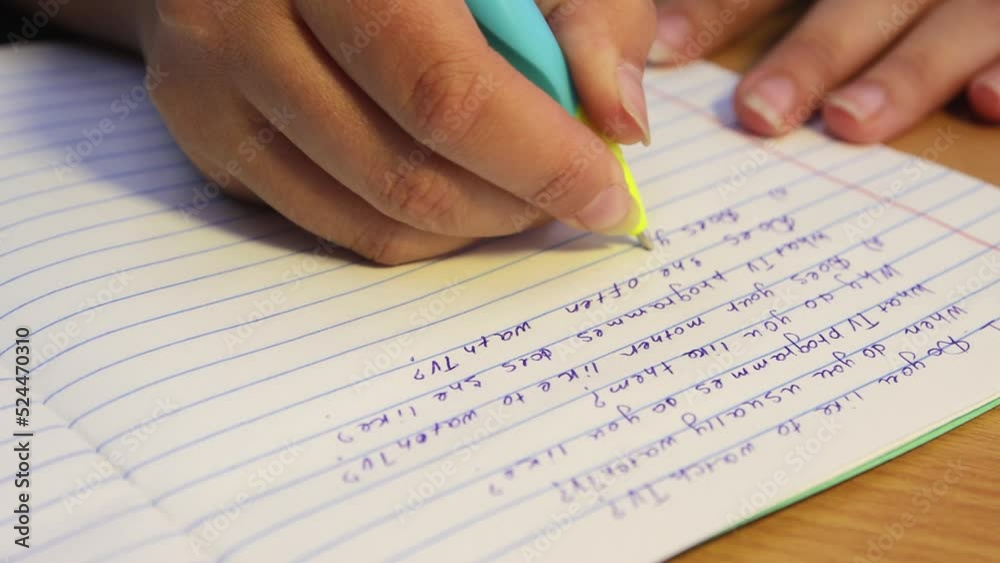 1. Do you like to watch TV?
When do you usually watch TV?
What TV programmes do you like?
Why do you like them?
2) Does your mother like to watch TV?
What TV programmes does she like?
Does she often watch TV?
3) Does y
Adobe Stock | #524470310